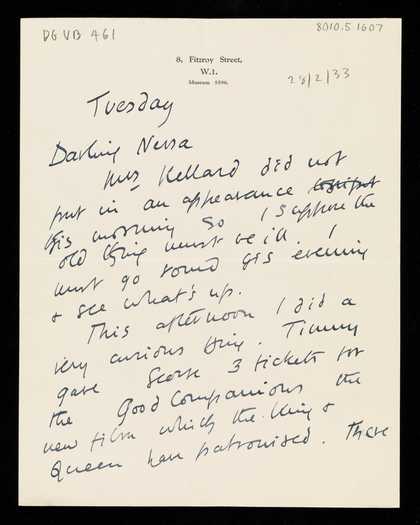 DG VB 461
8010.5.1607
8, Fitzroy Street,
W.1.
Museum
28/2/33
Tuesday
Darling Nessa
Mrs Kellard did not
put in an appearance
this morning so I suppose the
old thing must be ill. I
must go round this evening
& see what's up.
This afternoon I did a
very curious thing. Timmy
gave George 3 tickets for
the Good Companions the
new film which the King &
Queen have patronised. There